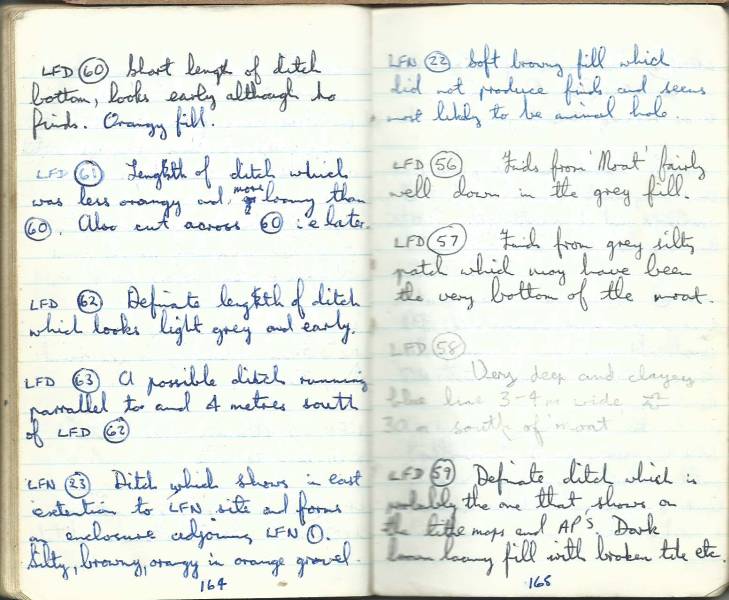 LFD 60 Short length of ditch
bottom, looks early although no
finds. Orangy fill.
LFD 61 Length of ditch which
was less orangy and more loamy than
60. Also cut across 60 i.e later.
LFD 62 Definate length of ditch
which looks light grey and early.
LFD 63 A possible ditch running
parrallel to and 4 metres south
of LFD 62
LFN 23 Ditch which shows in east
extention to LFN site and forms
an enclosure adjoining LFN 1.
Silty, browny, orangy in orange gravel.
164
LFN 22 Soft browny fill which
did not produce finds and seems
most likely to be animal hole.
LFD 56 Finds from 'Moat' fairly
well down in the grey fill.
LFD 57 Finds from grey silty
patch which may have been
the very bottom of the moat.
LFD 58
Very deep and clayey
blue line 3-4m wide
30m south of moat
LFD 59 Definate ditch which is
probably the one that shows on
the tithe maps and AP's. Dark
loamy fill with broken tile etc.
165